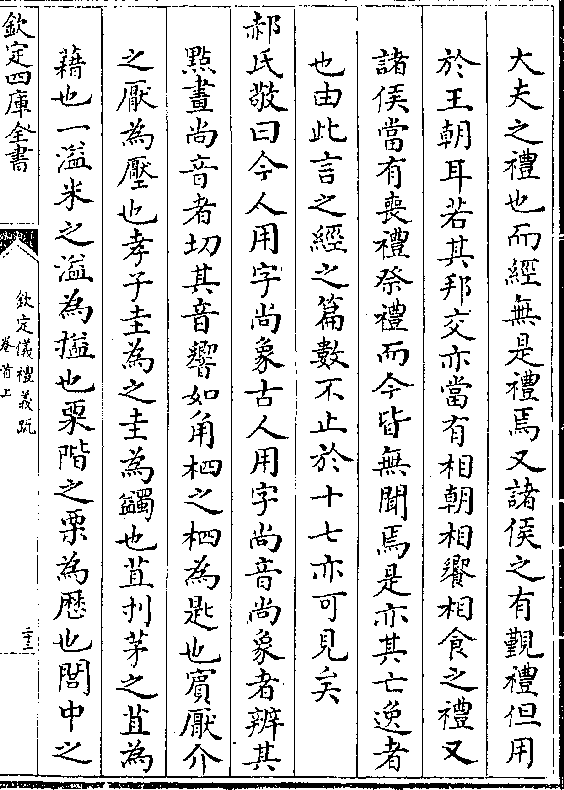 大夫之禮也而經無是禮焉又諸侯之有覲禮但用
於王朝耳若其邦交亦當有相朝相饗相食之禮又
諸侯當有喪禮祭禮而今皆無聞焉是亦其亡逸者
也由此言之經之篇數不止於十七亦可見矣
郝氏敬曰今人用字尚象古人用字尚音尚象者辨其
點畫尚音者切其音響如角柶之柶為匙也賓厭介
之厭為壓也孝子圭為之圭為蠲也苴刌茅之苴為
藉也一溢米之溢為搤也栗階之栗為歷也閻中之
欽定四庫全書
欽定儀禮義疏
卷首上